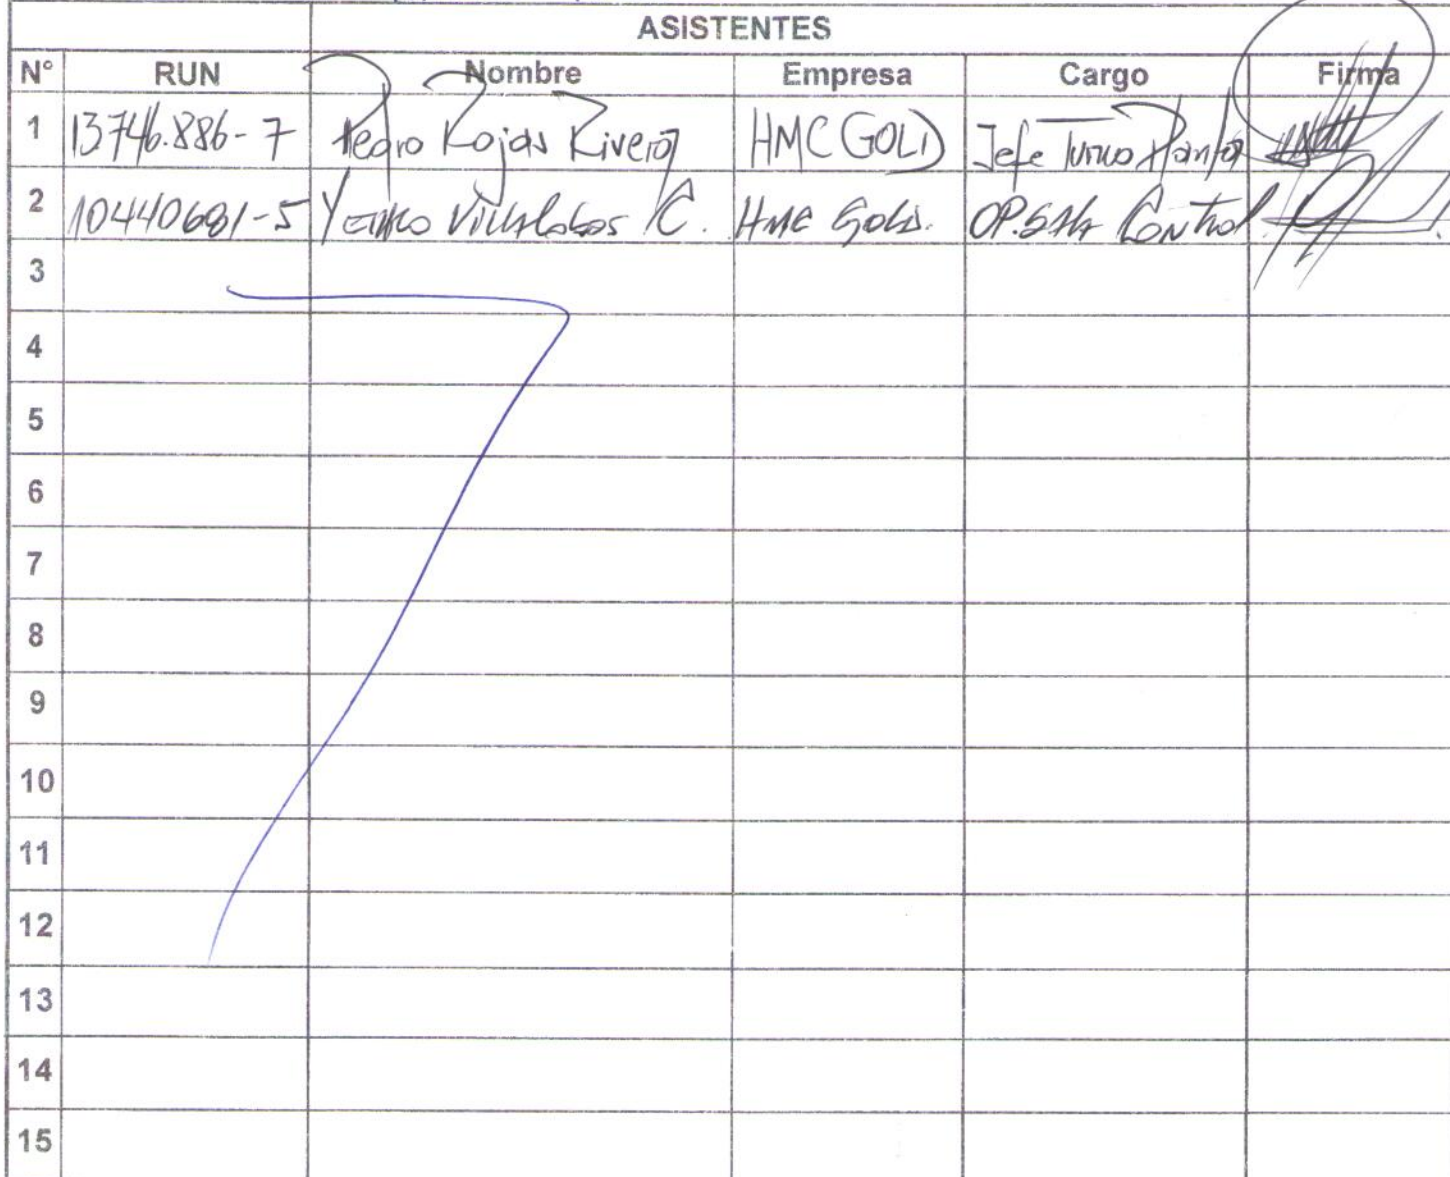 ASISTENTES
N° RUN Nombre Empresa Cargo Firma
1 13746.886-7 Pedro Rojas Rivera HMC GOLD Jefe Turno Planta
2 10440681-5 Yerko Villalobos C. HMC Gold. OP. SALA Control
3
4
5
6
7
8
9
10
11
12
13
14
15